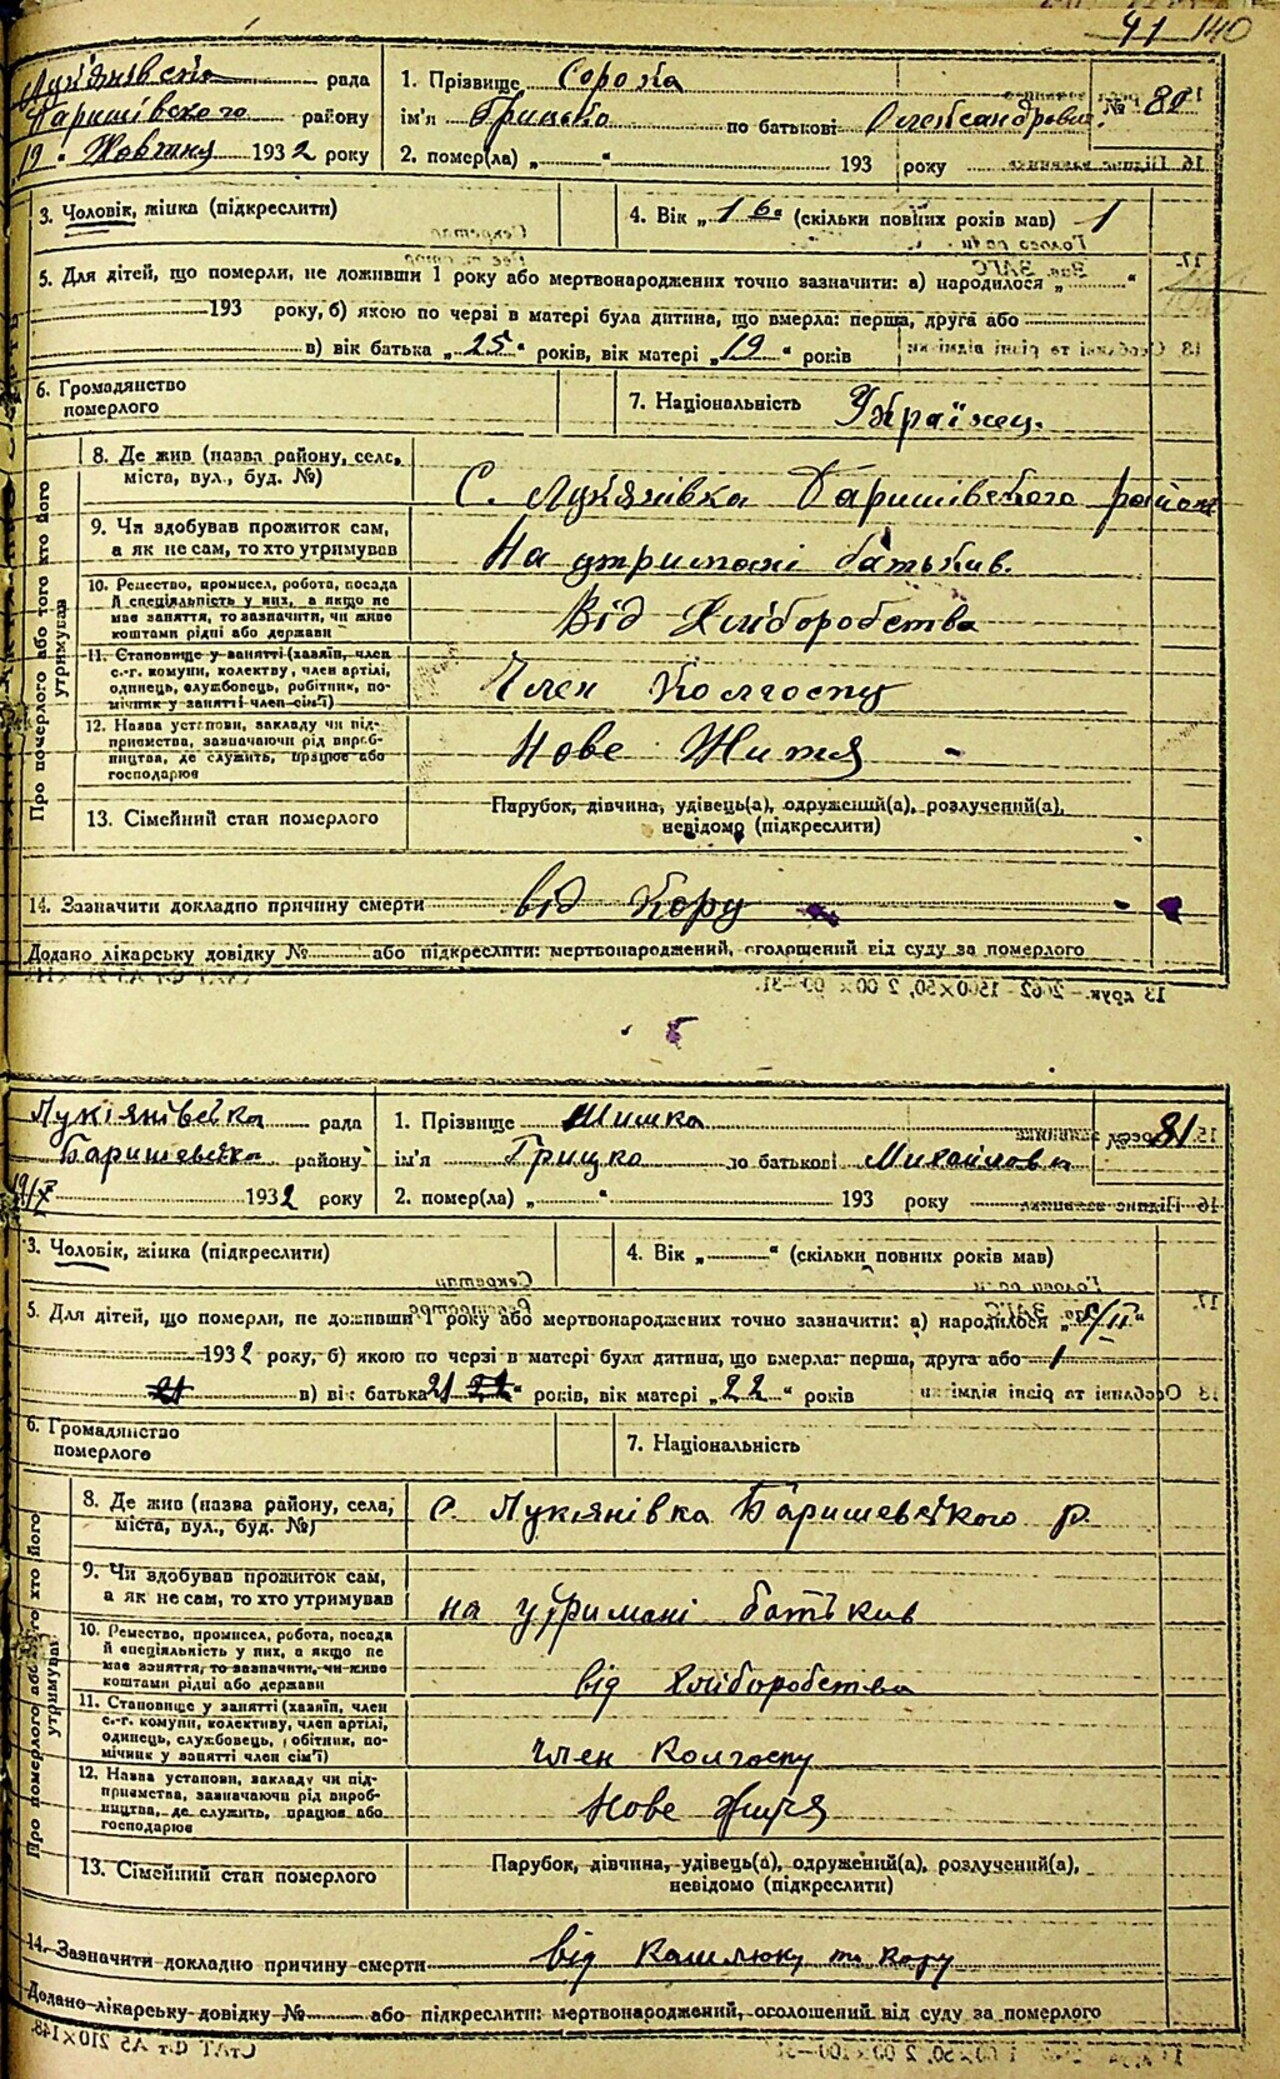 41 140
Лук'янівська рада
Баришівського району
19 " Жовтня 1932 року
1. Прізвище Сорока
ім'я Грицько по батькові Олександрович
№ 80
2. помер(ла) „ " 193 року
3. Чоловік, жінка (підкреслити)
4. Вік „ 1 (скільки повних рохів мав) 1
5. Для дітей, що померли, не доживши 1 року або мертвонароджених точно зазначити: а) народилося „ "
193 року, б) якою по черзі в матері була дитина, що вмерла: перша, друга або
в) вік батька „25" років, вік матері „19" років
6. Громадянство
померлого
7. Національність Українец.
Про померлого або того хто його
утримував
8. Де жив (назва району, села,
міста, вул., буд. №)
С. Лукянівка Баришівського район
9. Чи здобував прожиток сам,
а як не сам, то хто утримував
На утримані батьків.
10. Ремество, промисел, робота, посада
й спеціяльність у них, а якщо не
має заняття, то зазначити, чи живе
коштами рідні або держави
Від Хліборобства
11. Становище у занятті (хазяїн, член
с.-г. комуни, колективу, член артілі,
одинець, службовець, робітник, по-
мічник у занятті член сім'ї)
Член Колгоспу
12. Назва установи, закладу чи під-
приємства, зазначаючи рід вироб-
ництва, де служить, працює або
господарює
Нове Життя -
13. Сімейний стан померлого
Парубок, дівчина, удівець(а), одружений(а), розлучений(а),
невідомо (підкреслити)
14. Зазначити докладно причину смерти від Кору
Додано лікарську довідку № або підкреслити: мертвонароджений, оголошений від суду за померлого
Лукіянівська рада
Баришевська району
19/X 1932 року
1. Прізвище Шишка
ім'я Грицко по батькові Михайлови
81
2. помер(ла) „ " 193 року
3. Чоловік, жінка (підкреслити)
4. Вік „ " (скільки повних років мав)
5. Для дітей, що померли, не доживши 1 року або мертвонароджених точно зазначити: а) народилося „5/II"
1932 року, б) якою по черзі в матері була дитина, що вмерла: перша, друга або 1
21 в) вік батька 21 22" років, вік матері „22" років
6. Громадянство
померлого
7. Національність
Про померлого або того хто його
утримував
8. Де жив (назва району, села,
міста, вул., буд. №)
с. Лукянівка Баришевського р.
9. Чи здобував прожиток сам,
а як не сам, то хто утримував
на утримані батьків
10. Ремество, промисел, робота, посада
й спеціяльність у них, а якщо не
має заняття, то зазначити, чи живе
коштами рідні або держави
від хліборобства
11. Становище у занятті (хазяїн, член
с.-г. комуни, колективу, член артілі,
одинець, службовець, робітник, по-
мічник у занятті член сім'ї)
член колгоспу
12. Назва установи, закладу чи під-
приємства, зазначаючи рід вироб-
ництва, де служить, працює або
господарює
Нове життя
13. Сімейний стан померлого
Парубок, дівчина, удівець(а), одружений(а), розлучений(а),
невідомо (підкреслити)
14. Зазначити докладно причину смерти від кашлюку та кору
Додано лікарську довідку № або підкреслити: мертвонароджений, оголошений від суду за померлого